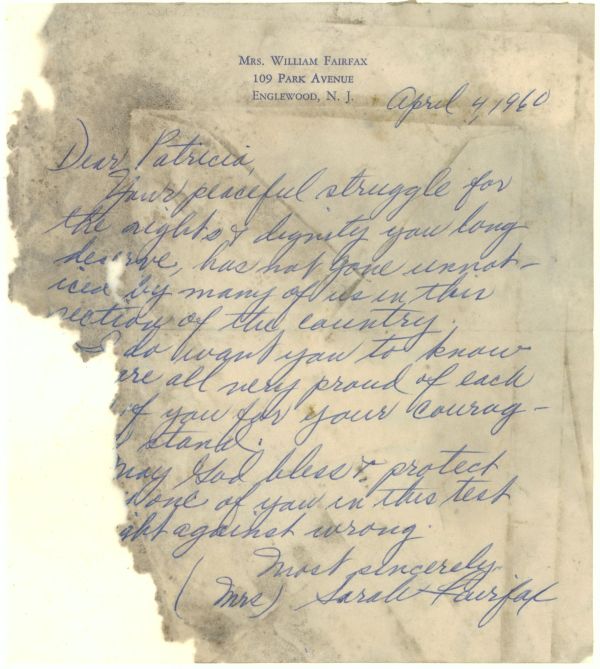 Mrs. William Fairfax
109 Park Avenue
Englewood, N. J.
April 4, 1960
Dear Patricia,
Your peaceful struggle for
the rights & dignity you long
deserve, has not gone unnot-
iced by many of us in this
section of the country.
I do want you to know
ere all very proud of each
of you for your courag-
stand.
may God bless & protect
one of you in this test
ht against wrong.
Most sincerely,
(Mrs) Sarah Fairfax